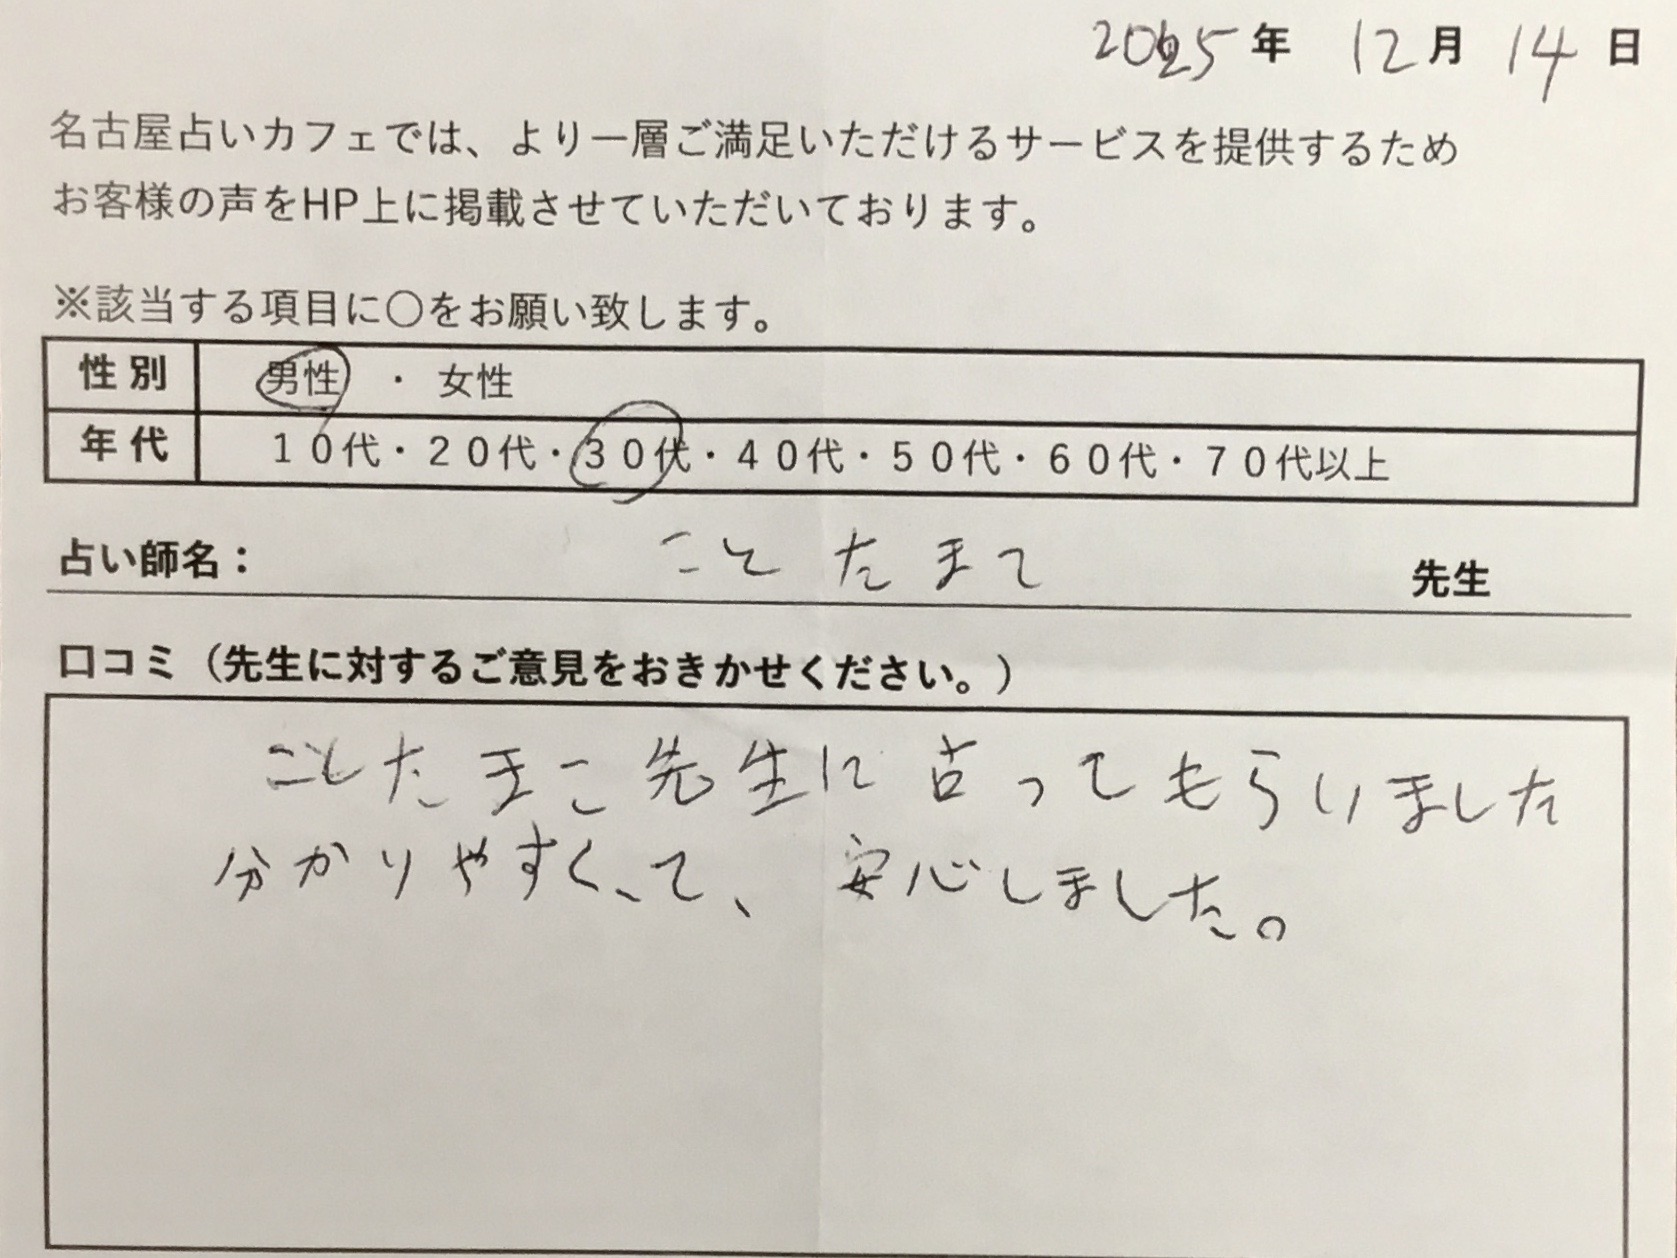 2025年 12月 14日
名古屋占いカフェでは、より一層ご満足いただけるサービスを提供するため
お客様の声をHP上に掲載させていただいております。
※該当する項目に〇をお願い致します。
性別 男性 ・ 女性
年代 10代・20代・30代・40代・50代・60代・70代以上
占い師名： ことたまて 先生
口コミ（先生に対するご意見をおきかせください。）
ことたまこ先生に占ってもらいました
分かりやすくて、安心しました。